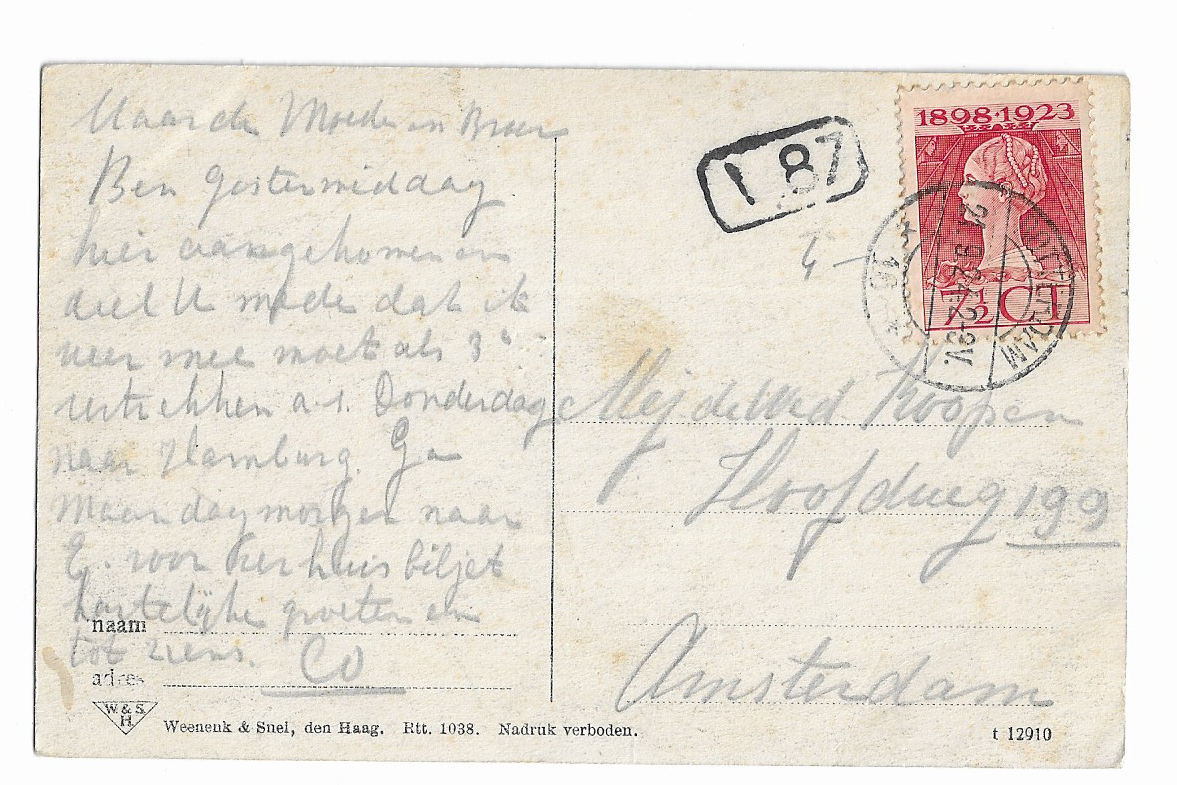 Waarde Moeder en Broer
Ben gistermiddag
hier aangekomen en
deel U mede dat ik
weer mee moet als 3e
vertrekken a.s. Donderdag
naar Hamburg. Ga
Maandagmorgen naar
E. voor verhuisbiljet
hartelijke groeten en
tot ziens. Co
naam
adres
W. & S.
H.
Weenenk & Snel, den Haag. Rtt. 1038. Nadruk verboden.
t 12910
1 87
1898·1923
7½ CT
Mej de Wed Koopen
Hoofdweg 199
Amsterdam